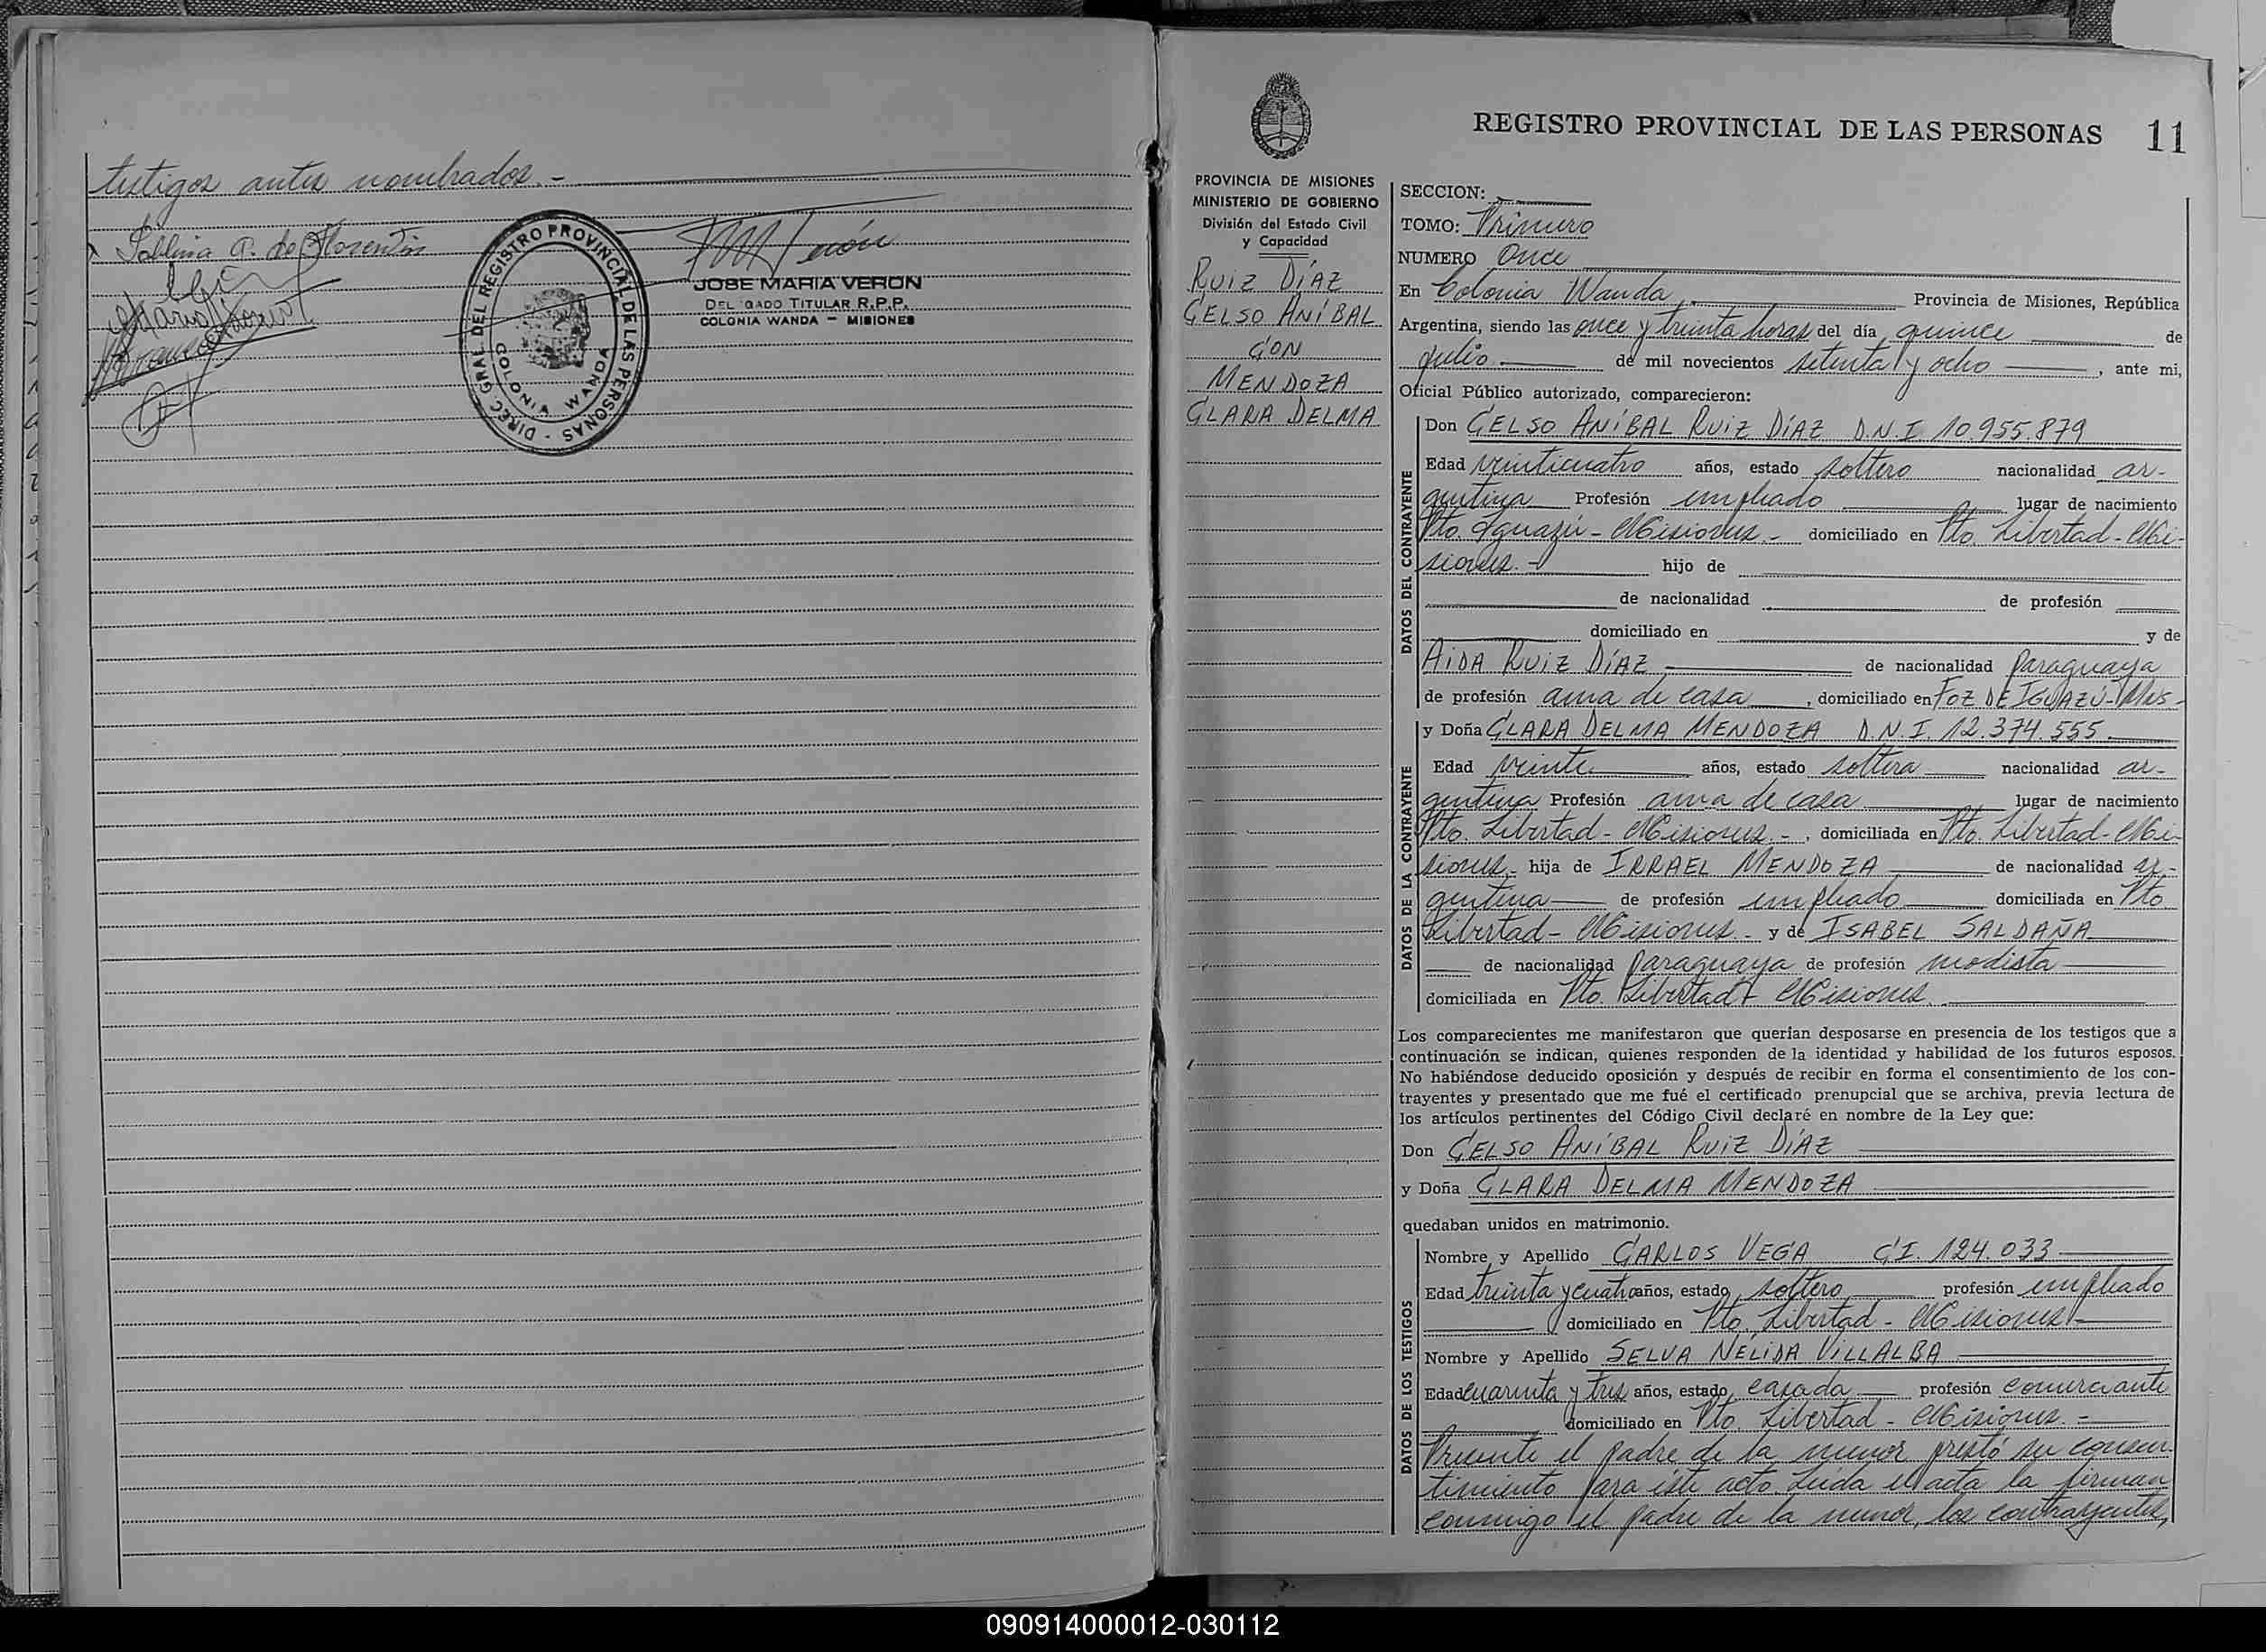 testigos antes nombrados.-
JOSE MARIA VERON
DEL GADO TITULAR R.P.P.
COLONIA WANDA - MISIONES
DIREC GRAL DEL REGISTRO PROVINCIAL DE LAS PERSONAS -
COLONIA WANDA
REGISTRO PROVINCIAL DE LAS PERSONAS 11
PROVINCIA DE MISIONES
MINISTERIO DE GOBIERNO
División del Estado Civil
y Capacidad
RUIZ DÍAZ
CELSO ANÍBAL
CON
MENDOZA
CLARA DELMA
SECCION:
TOMO: Primero
NUMERO Once
En Colonia Wanda, Provincia de Misiones, República
Argentina, siendo las once y treinta horas del día quince de
Julio de mil novecientos setenta y ocho, ante mi,
Oficial Público autorizado, comparecieron:
DATOS DEL CONTRAYENTE
Don CELSO ANÍBAL RUIZ DÍAZ D.N.I. 10.955.879
Edad veinticuatro años, estado soltero nacionalidad ar-
gentina Profesión empleado lugar de nacimiento
Pto. Iguazú - Misiones.- domiciliado en Pto. Libertad - Mi-
siones.- hijo de
de nacionalidad de profesión
domiciliado en y de
AIDA RUIZ DÍAZ, de nacionalidad Paraguaya
de profesión ama de casa, domiciliado en FOZ DE IGUAZÚ-Mns-
DATOS DE LA CONTRAYENTE
y Doña CLARA DELMA MENDOZA D.N.I. 12.374.555
Edad veinte años, estado soltera nacionalidad ar-
gentina Profesión ama de casa lugar de nacimiento
Pto. Libertad - Misiones.-, domiciliada en Pto. Libertad - Mi-
siones.- hija de IRRAEL MENDOZA de nacionalidad ar-
gentina de profesión empleado domiciliada en Pto.
Libertad - Misiones.- y de ISABEL SALDAÑA
de nacionalidad Paraguaya de profesión modista
domiciliada en Pto. Libertad - Misiones.
Los comparecientes me manifestaron que querían desposarse en presencia de los testigos que a
continuación se indican, quienes responden de la identidad y habilidad de los futuros esposos.
No habiéndose deducido oposición y después de recibir en forma el consentimiento de los con-
trayentes y presentado que me fué el certificado prenupcial que se archiva, previa lectura de
los artículos pertinentes del Código Civil declaré en nombre de la Ley que:
Don CELSO ANÍBAL RUIZ DÍAZ
y Doña CLARA DELMA MENDOZA
quedaban unidos en matrimonio.
DATOS DE LOS TESTIGOS
Nombre y Apellido CARLOS VEGA C.I. 124.033
Edad treinta y cuatro años, estado soltero profesión empleado
domiciliado en Pto. Libertad - Misiones.-
Nombre y Apellido SELVA NELIDA VILLALBA
Edad cuarenta y tres años, estado casada profesión comerciante
domiciliado en Pto. Libertad - Misiones.-
Presente el padre de la menor prestó su consen-
timiento para éste acto. Leída el acta la firman
conmigo el padre de la menor, los contrayentes,
090914000012-030112